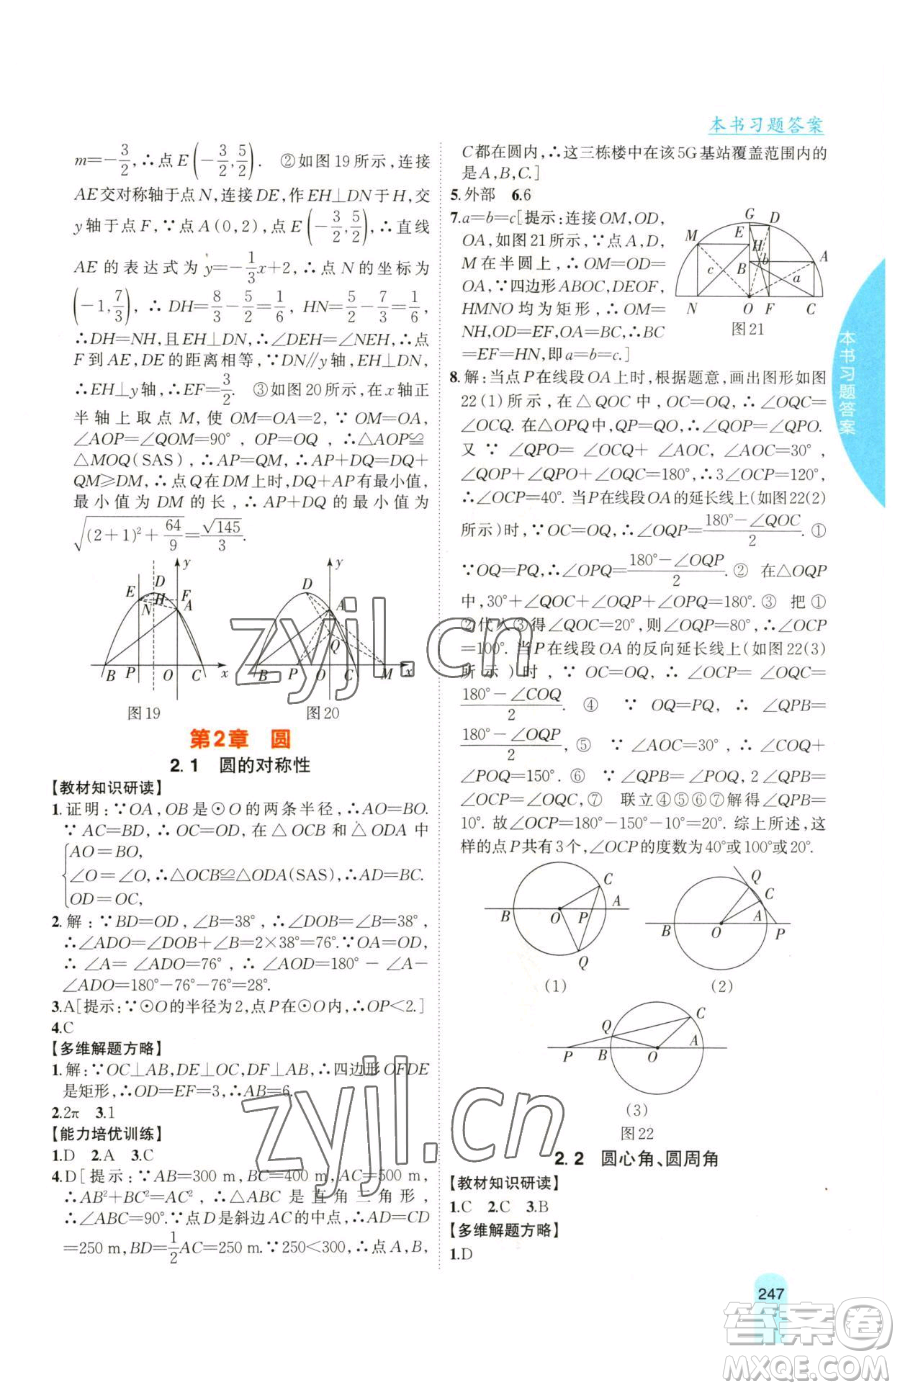 本书习题答案
m=-3/2,∴点E(-3/2,5/2). ②如图19所示,连接
AE交对称轴于点N,连接DE,作EH⊥DN于H,交
y轴于点F,∵点A(0,2),点E(-3/2,5/2),∴直线
AE的表达式为y=-1/3x+2,∴点N的坐标为
(-1,7/3),∴DH=8/3-5/2=1/6, HN=5/2-7/3=1/6,
∴DH=NH,且EH⊥DN,∴∠DEH=∠NEH,∴点
F到AE,DE的距离相等,∵DN∥y轴,EH⊥DN,
∴EH⊥y轴,∴EF=3/2. ③如图20所示,在x轴正
半轴上取点M,使OM=OA=2,∵OM=OA,
∠AOP=∠QOM=90°, OP=OQ,∴△AOP≌
△MOQ(SAS),∴AP=QM,∴AP+DQ=DQ+
QM≥DM,∴当点Q在DM上时,DQ+AP有最小值,
最小值为DM的长,∴AP+DQ的最小值为
√((2+1)²+64/9)=√145/3.
y
E D H F
N A
B P O C x
图19
y
D
A
Q
B P O C M x
图20
第2章 圆
2.1 圆的对称性
【教材知识研读】
1.证明:∵OA,OB是⊙O的两条半径,∴AO=BO.
∵AC=BD,∴OC=OD,在△OCB和△ODA中
{AO=BO,
∠O=∠O,∴△OCB≌△ODA(SAS),∴AD=BC.
OD=OC,
2.解:∵BD=OD,∠B=38°,∴∠DOB=∠B=38°,
∴∠ADO=∠DOB+∠B=2×38°=76°.∵OA=OD,
∴∠A=∠ADO=76°,∴∠AOD=180°-∠A-
∠ADO=180°-76°-76°=28°.
3.A[提示:∵⊙O的半径为2,点P在⊙O内,∴OP<2.]
4.C
【多维解题方略】
1.解:∵OC⊥AB,DE⊥OC,DF⊥AB,∴四边形OFDE
是矩形,∴OD=EF=3,∴AB=6.
2.2π 3.1
【能力培优训练】
1.D 2.A 3.C
4.D[提示:∵AB=300 m,BC=400 m,AC=500 m,
∴AB²+BC²=AC²,∴△ABC是直角三角形,
∴∠ABC=90°.∵点D是斜边AC的中点,∴AD=CD
=250 m,BD=1/2AC=250 m.∵250<300,∴点A,B,
C都在圆内,∴这三栋楼中在该5G基站覆盖范围内的
是A,B,C.]
5.外部 6.6
7.a=b=c[提示:连接OM,OD,
OA,如图21所示,∵点A,D,
M在半圆上,∴OM=OD=
OA,∵四边形ABOC,DEOF,
HMNO均为矩形,∴OM=
NH,OD=EF,OA=BC,∴BC
=EF=HN,即a=b=c.]
G D
M E H A
B b
c a
N O F C
图21
8.解:当点P在线段OA上时,根据题意,画出图形如图
22(1)所示,在△QOC中,OC=OQ,∴∠OQC=
∠OCQ.在△OPQ中,QP=QO,∴∠QOP=∠QPO.
又∵∠QPO=∠OCQ+∠AOC,∠AOC=30°,
∠QOP+∠QPO+∠OQC=180°,∴3∠OCP=120°,
∴∠OCP=40°. 当P在线段OA的延长线上(如图22(2)
所示)时,∵OC=OQ,∴∠OQP=(180°-∠QOC)/2. ①
∵OQ=PQ,∴∠OPQ=(180°-∠OQP)/2. ② 在△OQP
中,30°+∠QOC+∠OQP+∠OPQ=180°.③ 把①
②代入③得∠QOC=20°,则∠OQP=80°,∴∠OCP
=100°. 当P在线段OA的反向延长线上(如图22(3)
所示)时,∵OC=OQ,∴∠OCP=∠OQC=
(180°-∠COQ)/2. ④ ∵OQ=PQ,∴∠OPQ=∠POQ,
⑤ ∵∠AOC=30°,∴∠QPB+∠OCP=30°,∠COQ
+∠POQ=150°. ⑥ ∵∠QPB+∠POQ=
2∠QPB=∠OQC,⑦ 联立④⑤⑥⑦解得∠QPB=
10°. 故∠OCP=180°-150°-10°=20°. 综上所述,这
样的点P共有3个,∠OCP的度数为40°或100°或20°.
B O P A C Q
(1)
Q C
B O A P
(2)
Q C
P B O A
(3)
图22
2.2 圆心角、圆周角
【教材知识研读】
1.C 2.C 3.B
【多维解题方略】
1.D
本书习题答案
247
zyjl.cn
zyjl.cn
答案圈
MXQE.COM